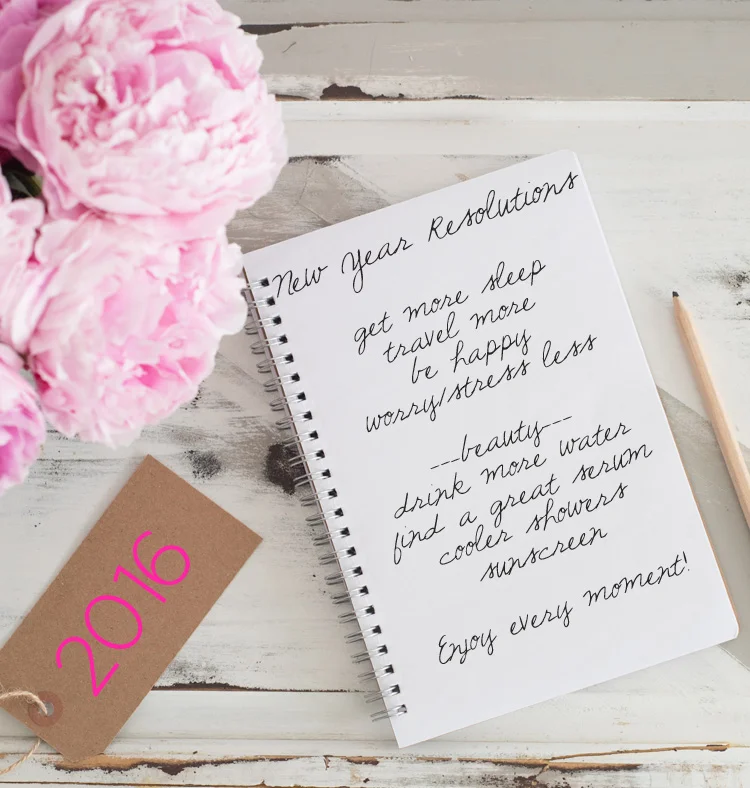 New Year Resolutions
get more sleep
travel more
be happy
worry/stress less
---beauty---
drink more water
find a great serum
cooler showers
sunscreen
Enjoy every moment!
2016